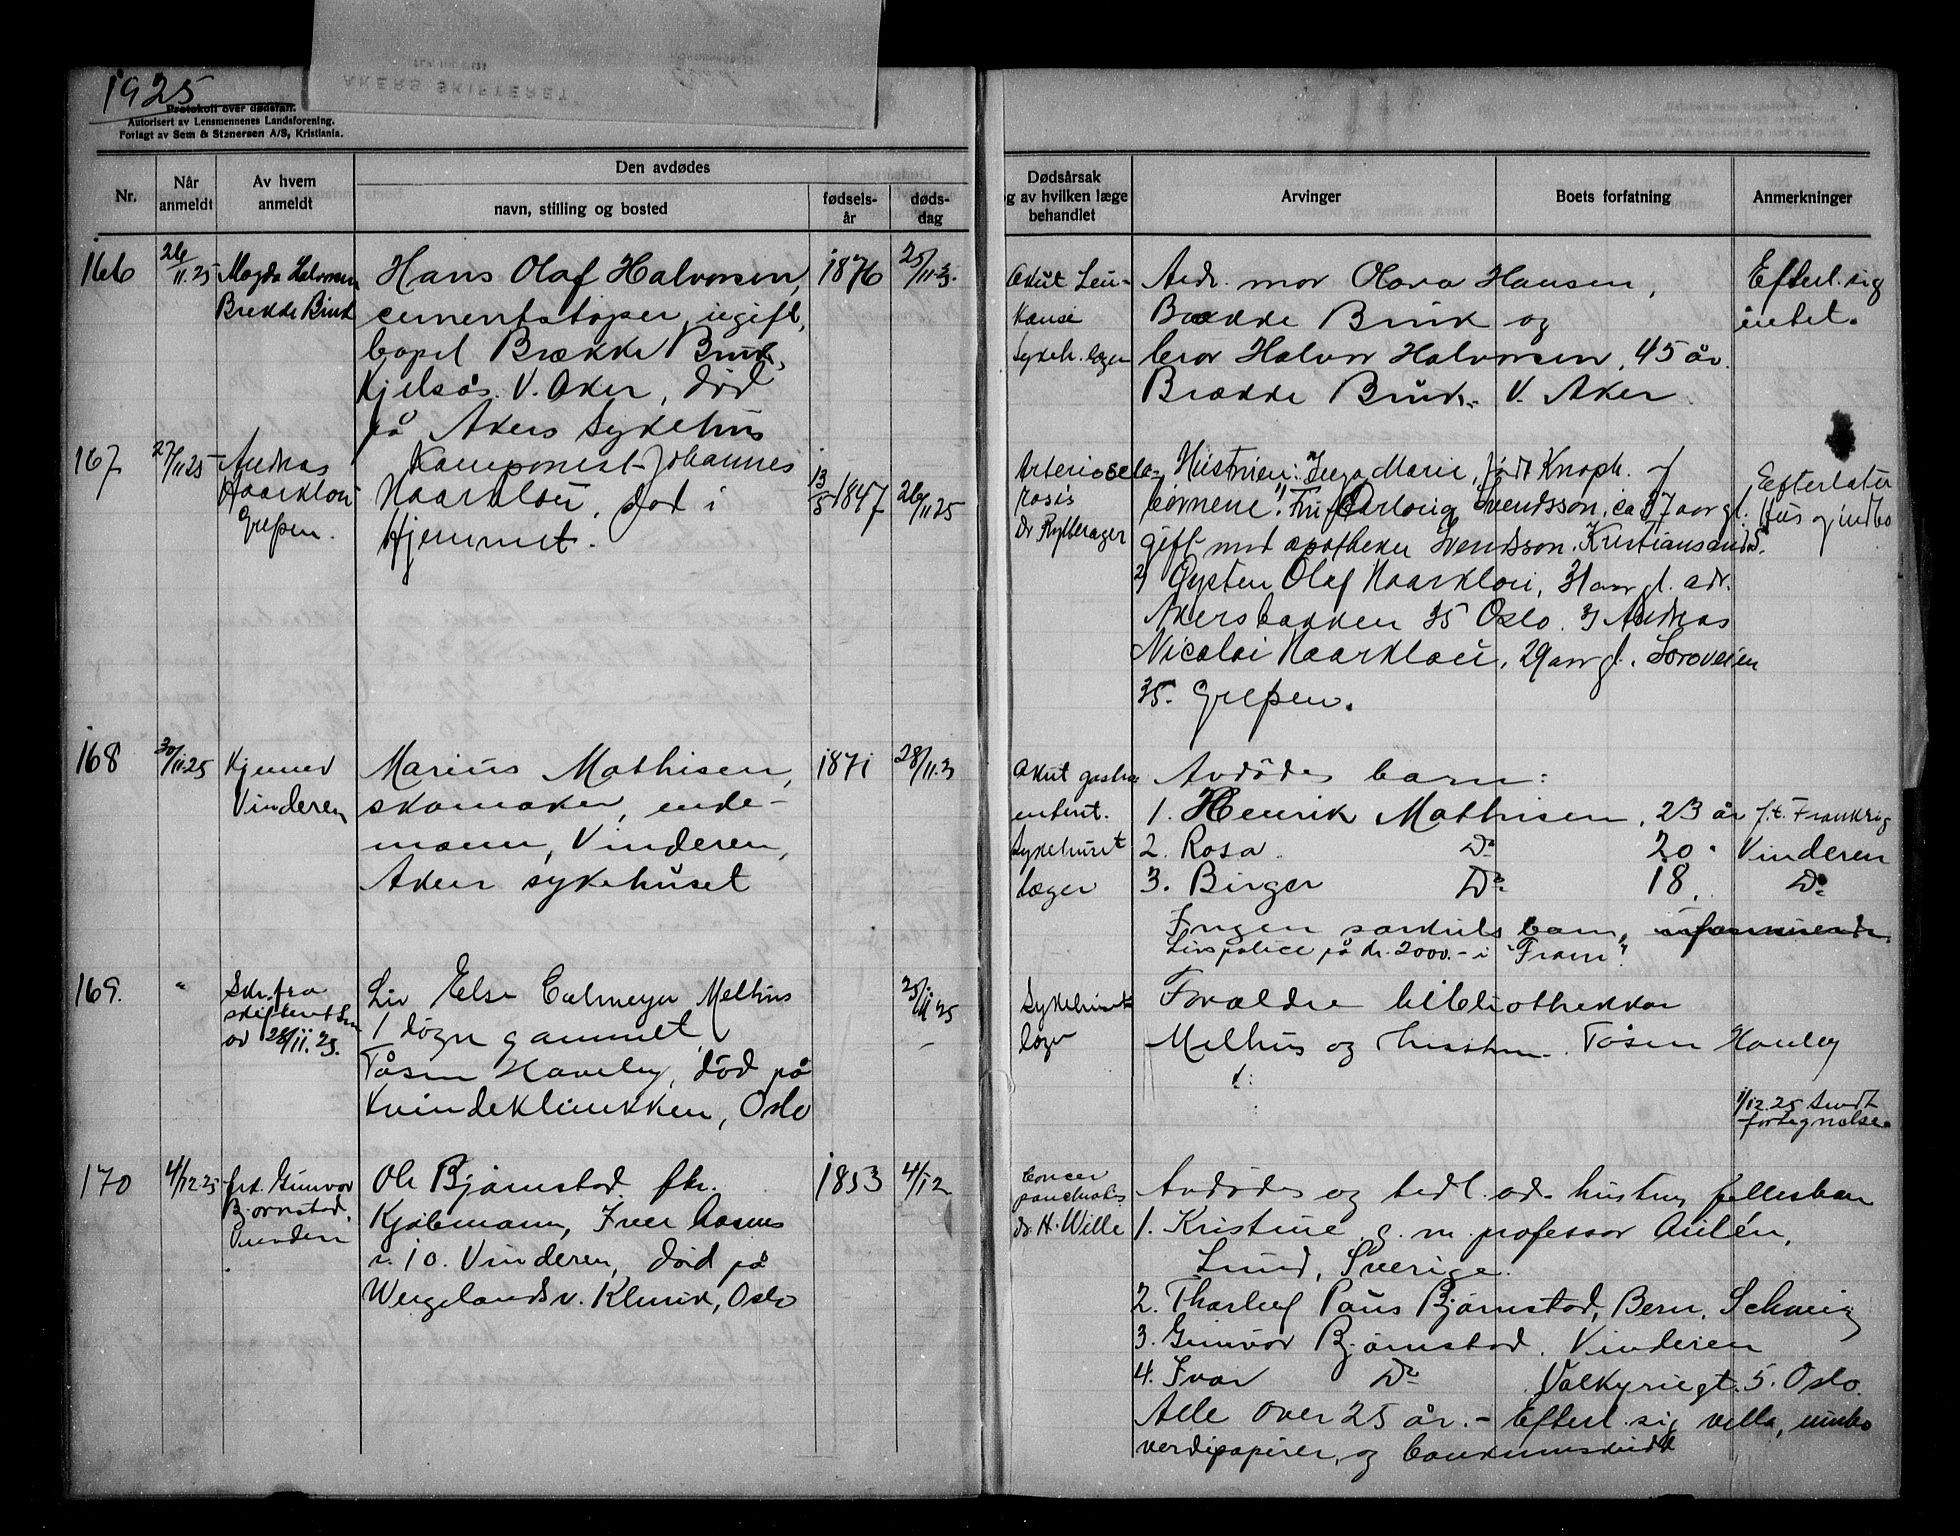 1925
Protokoll over dødsfall.
Autorisert av Lensmennenes Landsforening.
Forlagt av Sem & Stenersen A/S, Kristiania.
AKERS SKIFTERET
Nr.
Når anmeldt
Av hvem anmeldt
Den avdødes
navn, stilling og bosted
fødsels-år
døds-dag
Dødsårsak
og av hvilken læge
behandlet
Arvinger
Boets forfatning
Anmerkninger
166
26/11.25
Magda Halvorsen
Brekke Bruk
Hans Olaf Halvorsen,
cementstøper, ugift,
bopel Brække Bruk,
Kjelsås. V. Aker, død
på Akers Sykehus
1876
25/11.25.
Akut Leu-
kæmi
Sykeh. læger
Avdr. mor Olava Hansen,
Brække Bruk og
bror Halvor Halvorsen, 45 år.
Brække Bruk. V. Aker
Efterl. sig
intet.
167
27/11 25
Andreas
Haarklou
Grefsen.
Komponist Johannes
Haarklou, død i
Hjemmet.
13/5 1847
26/11 25
Arteriosclerosis
Dr Rytterager
Hustruen: Inga Marie, født Knoph. &
børnene: 1) Fru Svendsson, ca 37 aar gl.
gift med apotheker Svendsson, Kristiansand S.
2) Øysten Olaf Haarklou, 31 aar gl. adr.
Akersbakken 35 Oslo. 3) Andreas
Nicolai Haarklou, 29 aar gl.
35. Grefsen.
Efterlater
Hus og indbo
168
30/11.25
Vinderen
Marius Mathisen,
skomaker, enke-
mann, Vinderen,
Aker sykehuset
1871
28/11.25
Akut gastro
enterit.
Sykehuset
læger
Avdødes barn:
1. Henrik Mathisen, 23 år f.t. Frankrig
2. Rosa Do 20 " Vinderen
3. Birger Do 18 " Do
Ingen særkuls barn,
Livspolice på kr. 2000.- i "Fram".
169.
"
Skr. fra
skifteret
av 28/11.25.
Liv Else Calmeyer Melhus
1 døgn gammel
Tåsen Haveby, død på
Kvindeklinikken, Oslo
25/11 25
Sykehusets
læger
Forældre bibliothekar
Melhus og hustru. Tåsen Haveby
1/12.25 Sendt
fortegnelse.
170
4/12.25
frk. Gunvor
Bjørnstad,
Vinderen
Ole Bjørnstad fhv.
Kjøbmann, Iver Aasens
v. 10. Vinderen, død på
Wergelandsv. Klinik, Oslo
1853
4/12
Cancer
pancreatis
dr. H. Wille
Avdødes og tidl. avd. hustrus fellesbarn
1. Kristine g. m. professor Aulén,
Lund, Sverige.
2. Tharlief Paus Bjørnstad, Bern, Schweiz
3. Gunvor Bjørnstad. Vinderen
4. Ivar Do Valkyriegt. 5. Oslo.
Alle over 25 år. - Efterl. sig villa, innbo
verdipapirer, og bankinnskudd